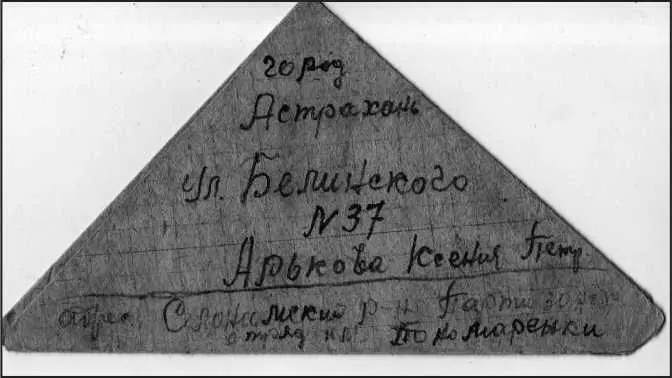 город
Астрахань
ул. Белинского
N 37
Арькова Ксения Петр.
адрес, Слонимский р-н Партизанск
отряд им Пономаренки